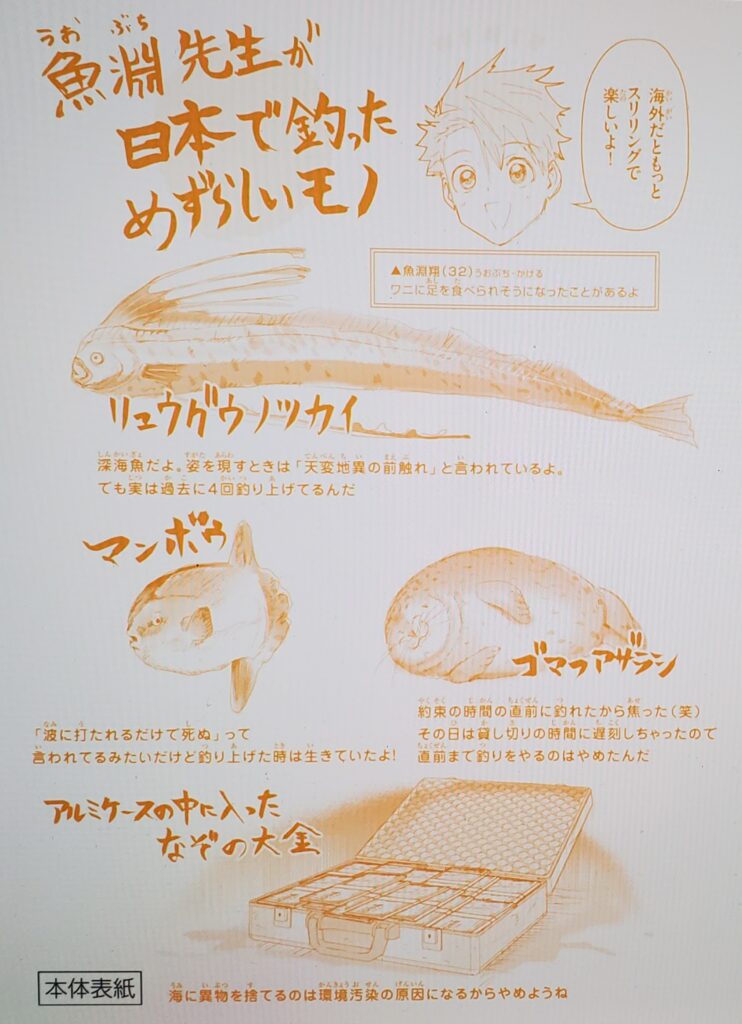 魚淵先生が
日本で釣った
めずらしいモノ
海外だともっと
スリリングで
楽しいよ！
▲魚淵翔(32)うおぶち・かける
ワニに足を食べられそうになったことがあるよ
リュウグウノツカイ
深海魚だよ。姿を現すときは「天変地異の前触れ」と言われているよ。
でも実は過去に4回釣り上げてるんだ
マンボウ
「波に打たれるだけで死ぬ」って
言われてるみたいだけど釣り上げた時は生きていたよ！
ゴマフアザラシ
約束の時間の直前に釣れたから焦った(笑)
その日は貸し切りの時間に遅刻しちゃったので
直前まで釣りをやるのはやめたんだ
アルミケースの中に入った
なぞの大金
本体表紙
海に異物を捨てるのは環境汚染の原因になるからやめようね